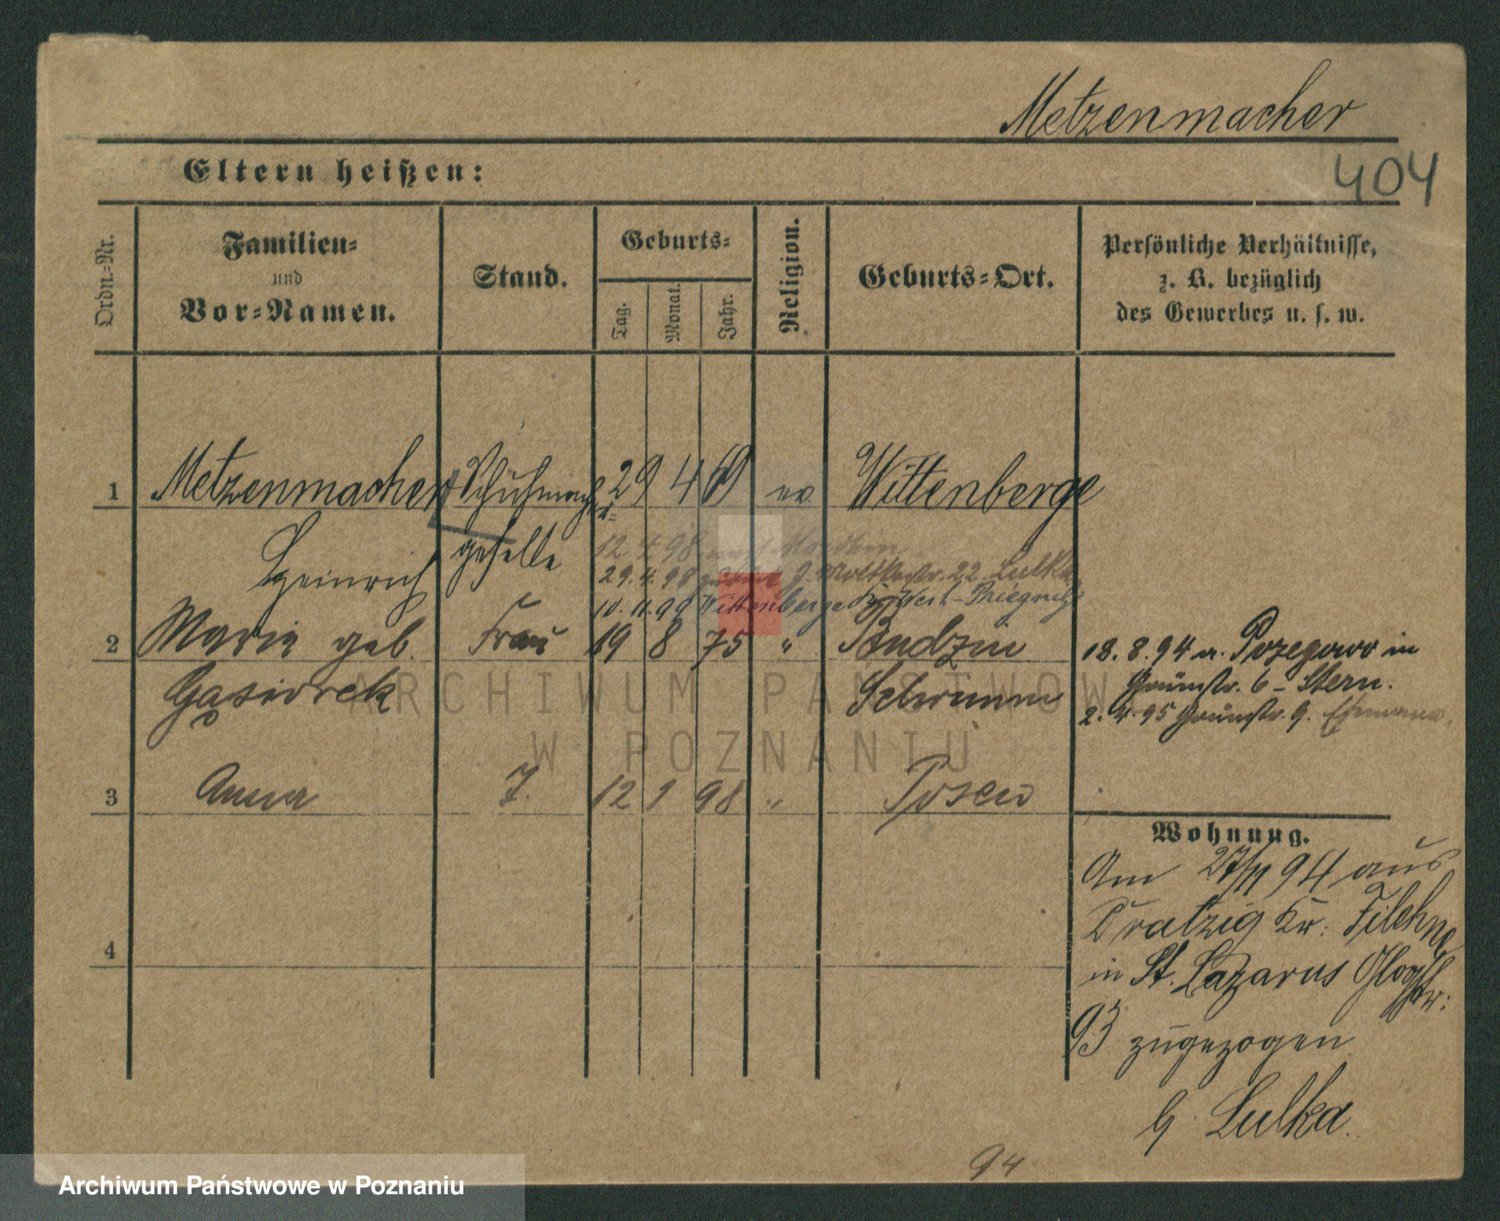 Metzenmacher
404
Eltern heißen:
Ordn.-Nr.
Familien-
und
Vor-Namen.
Stand.
Geburts-
Tag.
Monat.
Jahr.
Religion.
Geburts-Ort.
Persönliche Verhältnisse,
z. B. bezüglich
des Gewerbes u. s. w.
1 Metzenmacher Schuhmacher= 29 4 69 ev Wittenberge
Heinrich geselle
12 4 98
29.4.98 Moltkestr. 22 Lulka
10.11.99 Wittenberge Kr. West-Priegnitz
2 Marie geb. Frau 19 8 75 " Budzin
Gąsiorek Schrimm
18.8.94 n. Pozegowo in
Grünstr. 6 - Stern.
2.4.95 Grünstr. 9.
3 Anna T. 12 1 98 " Posen
4
Wohnung.
Am 27/11 94 aus
Dratzig Kr. Filehne
in St. Lazarus Glog Str:
93 zugezogen
b. Lulka.
94
ARCHIWUM PAŃSTWOWE
W POZNANIU
Archiwum Państwowe w Poznaniu